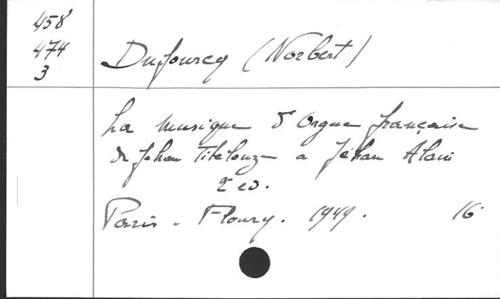 458'
474
3
Dufourcq (Norbert)
La musique d'Orgue française
de Jehan Titelouze a Jéhan Alain
2 ed.
Paris - Floury. 1949. 16